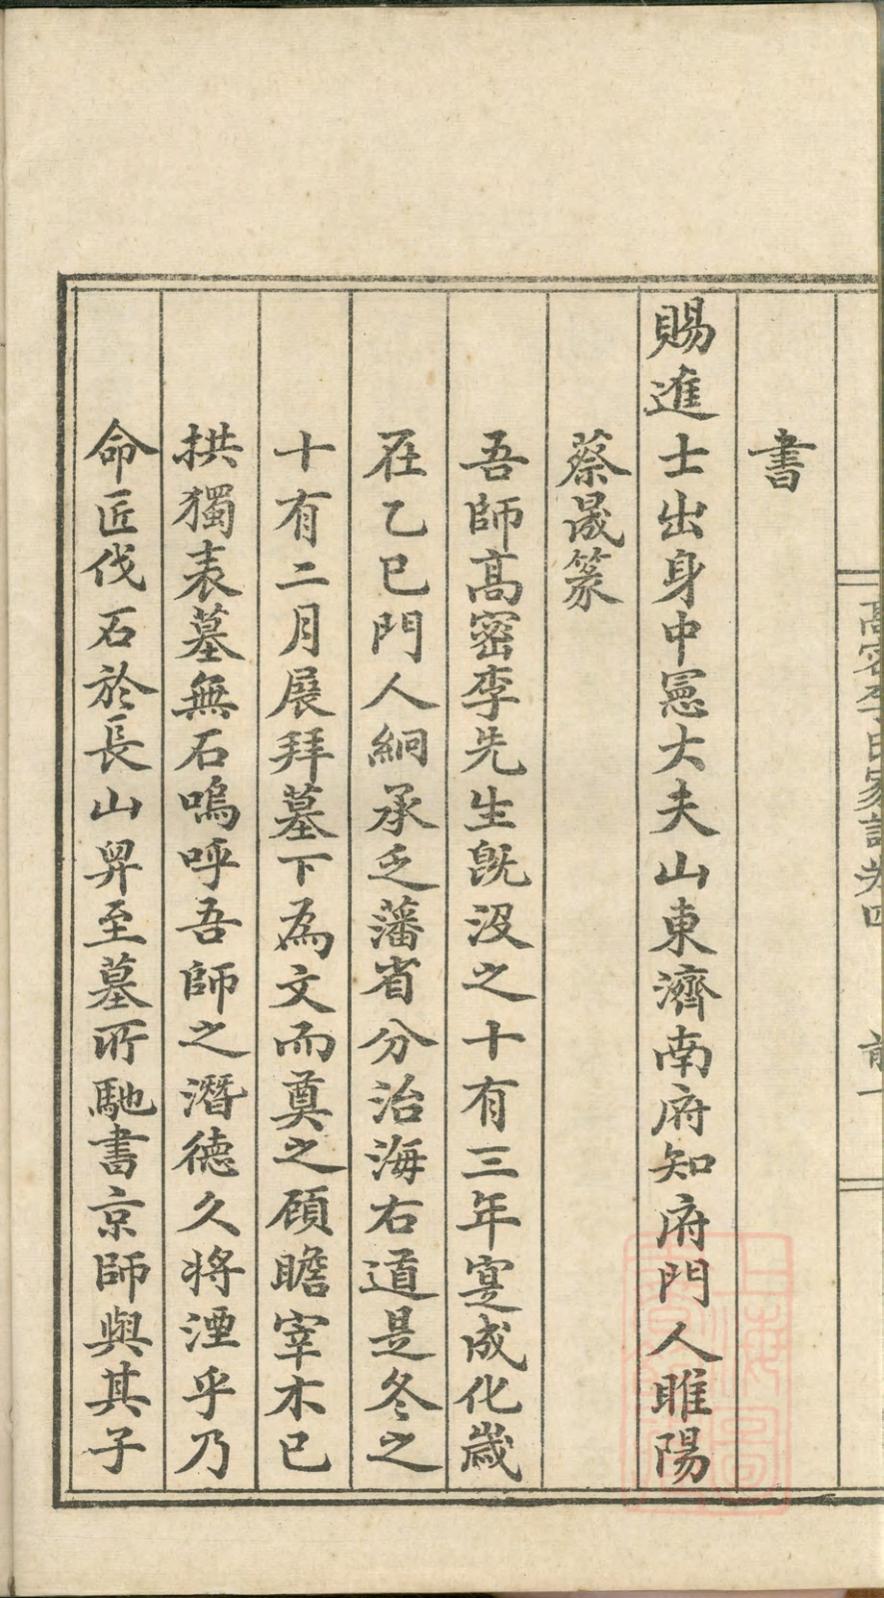 高密李氏家譜卷四
前一
書
賜進士出身中憲大夫山東濟南府知府門人睢陽
蔡晟篆
吾師髙密李先生旣沒之十有三年寔成化歲
在乙巳門人絅承乏藩省分治海右道是冬之
十有二月展拜墓下為文而奠之顧瞻宰木已
拱獨表墓無石嗚呼吾師之潛德久將湮乎乃
命匠伐石於長山舁至墓所馳書京師與其子